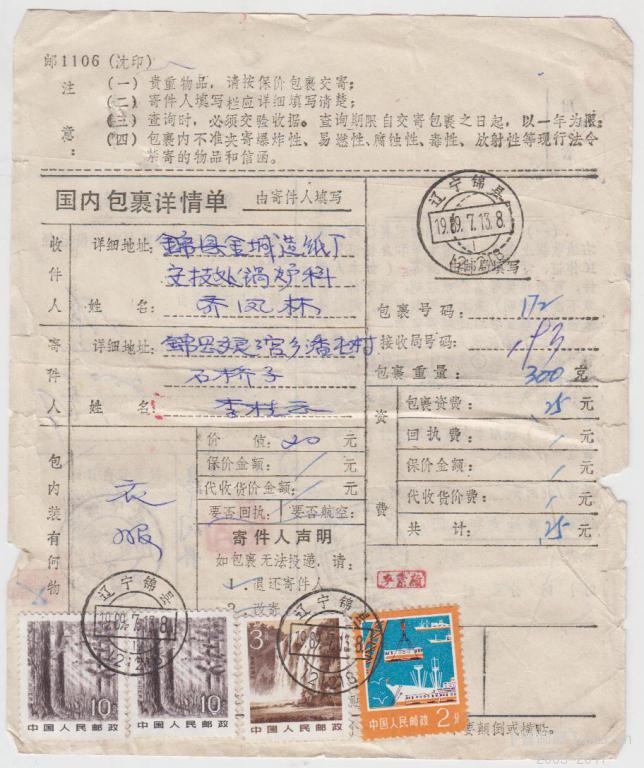 邮1106(沈印)
注意:
(一)贵重物品,请按保价包裹交寄;
(二)寄件人填写栏应详细填写清楚;
(三)查询时,必须交验收据。查询期限自交寄包裹之日起,以一年为限;
(四)包裹内不准夹寄爆炸性、易燃性、腐蚀性、毒性、放射性等现行法令
禁寄的物品和信函。
国内包裹详情单 由寄件人填写
辽宁锦县
1989.7.13.8
由邮局填写
收件人
详细地址:錦县金城造纸厂
安技处锅炉科
姓 名:乔凤林
寄件人
详细地址:
石桥子
姓 名:李桂云
包裹号码:172
接收局号码:
包裹重量:300克
资费
包裹资费:.25元
回执费:元
保价金额:元
代收货价费:元
共 计:.25元
包内装有何物
衣服
价 值:20元
保价金额:元
代收货价金额:元
要否回执: 要否航空:
寄件人声明
如包裹无法投递,请:
1.退还寄件人
2.改寄
辽宁锦县
1989.7.13.8
辽宁锦县
1989.7.13.8
10分
中国人民邮政
10分
中国人民邮政
3分
中国人民邮政
2分
中国人民邮政
要颠倒或横贴。